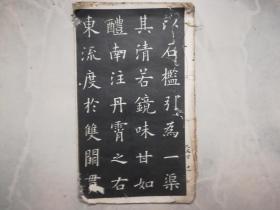 以石檻引為一渠
其清若鏡味甘如
醴南注丹霄之右
東流度於雙闕貫